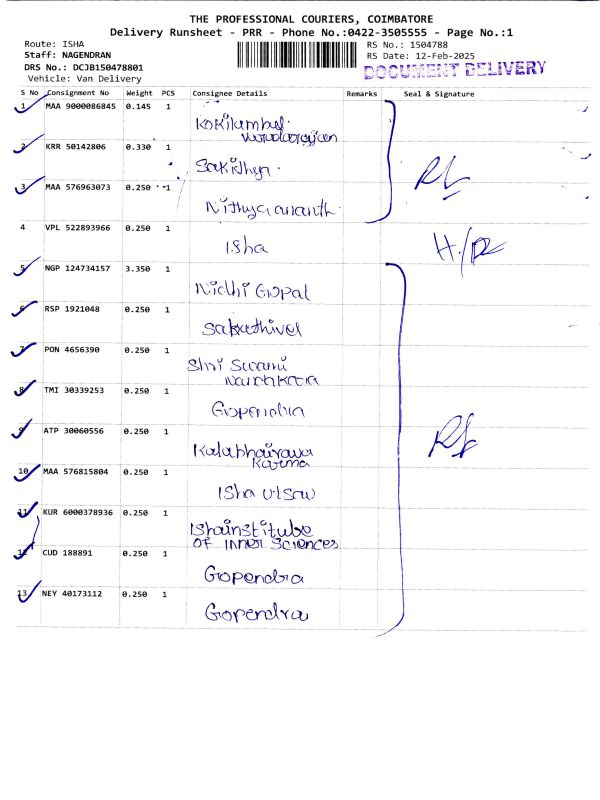 THE PROFESSIONAL COURIERS, COIMBATORE
Delivery Runsheet - PRR - Phone No.:0422-3505555 - Page No.:1
Route: ISHA
Staff: NAGENDRAN
DRS No.: DCJB150478801
Vehicle: Van Delivery
RS No.: 1504788
RS Date: 12-Feb-2025
DOCUMENT DELIVERY
S No Consignment No Weight PCS Consignee Details Remarks Seal & Signature
1 MAA 9000086845 0.145 1
Kokilambal
2 KRR 50142806 0.330 1
Sakidhya
3 MAA 576963073 0.250 1
Nithyaiananth
4 VPL 522893966 0.250 1
Isha
5 NGP 124734157 3.350 1
Nidhi Gopal
6 RSP 1921048 0.250 1
Sakathivel
7 PON 4656390 0.250 1
Shri Swami
8 TMI 30339253 0.250 1
Gopendra
9 ATP 30060556 0.250 1
Kalabhairava
Karma
10 MAA 576815804 0.250 1
Isha Utsav
11 KUR 6000378936 0.250 1
Ishainstitube
OF Inner Sciences
12 CUD 188891 0.250 1
Gopendra
13 NEY 40173112 0.250 1
Gopendra